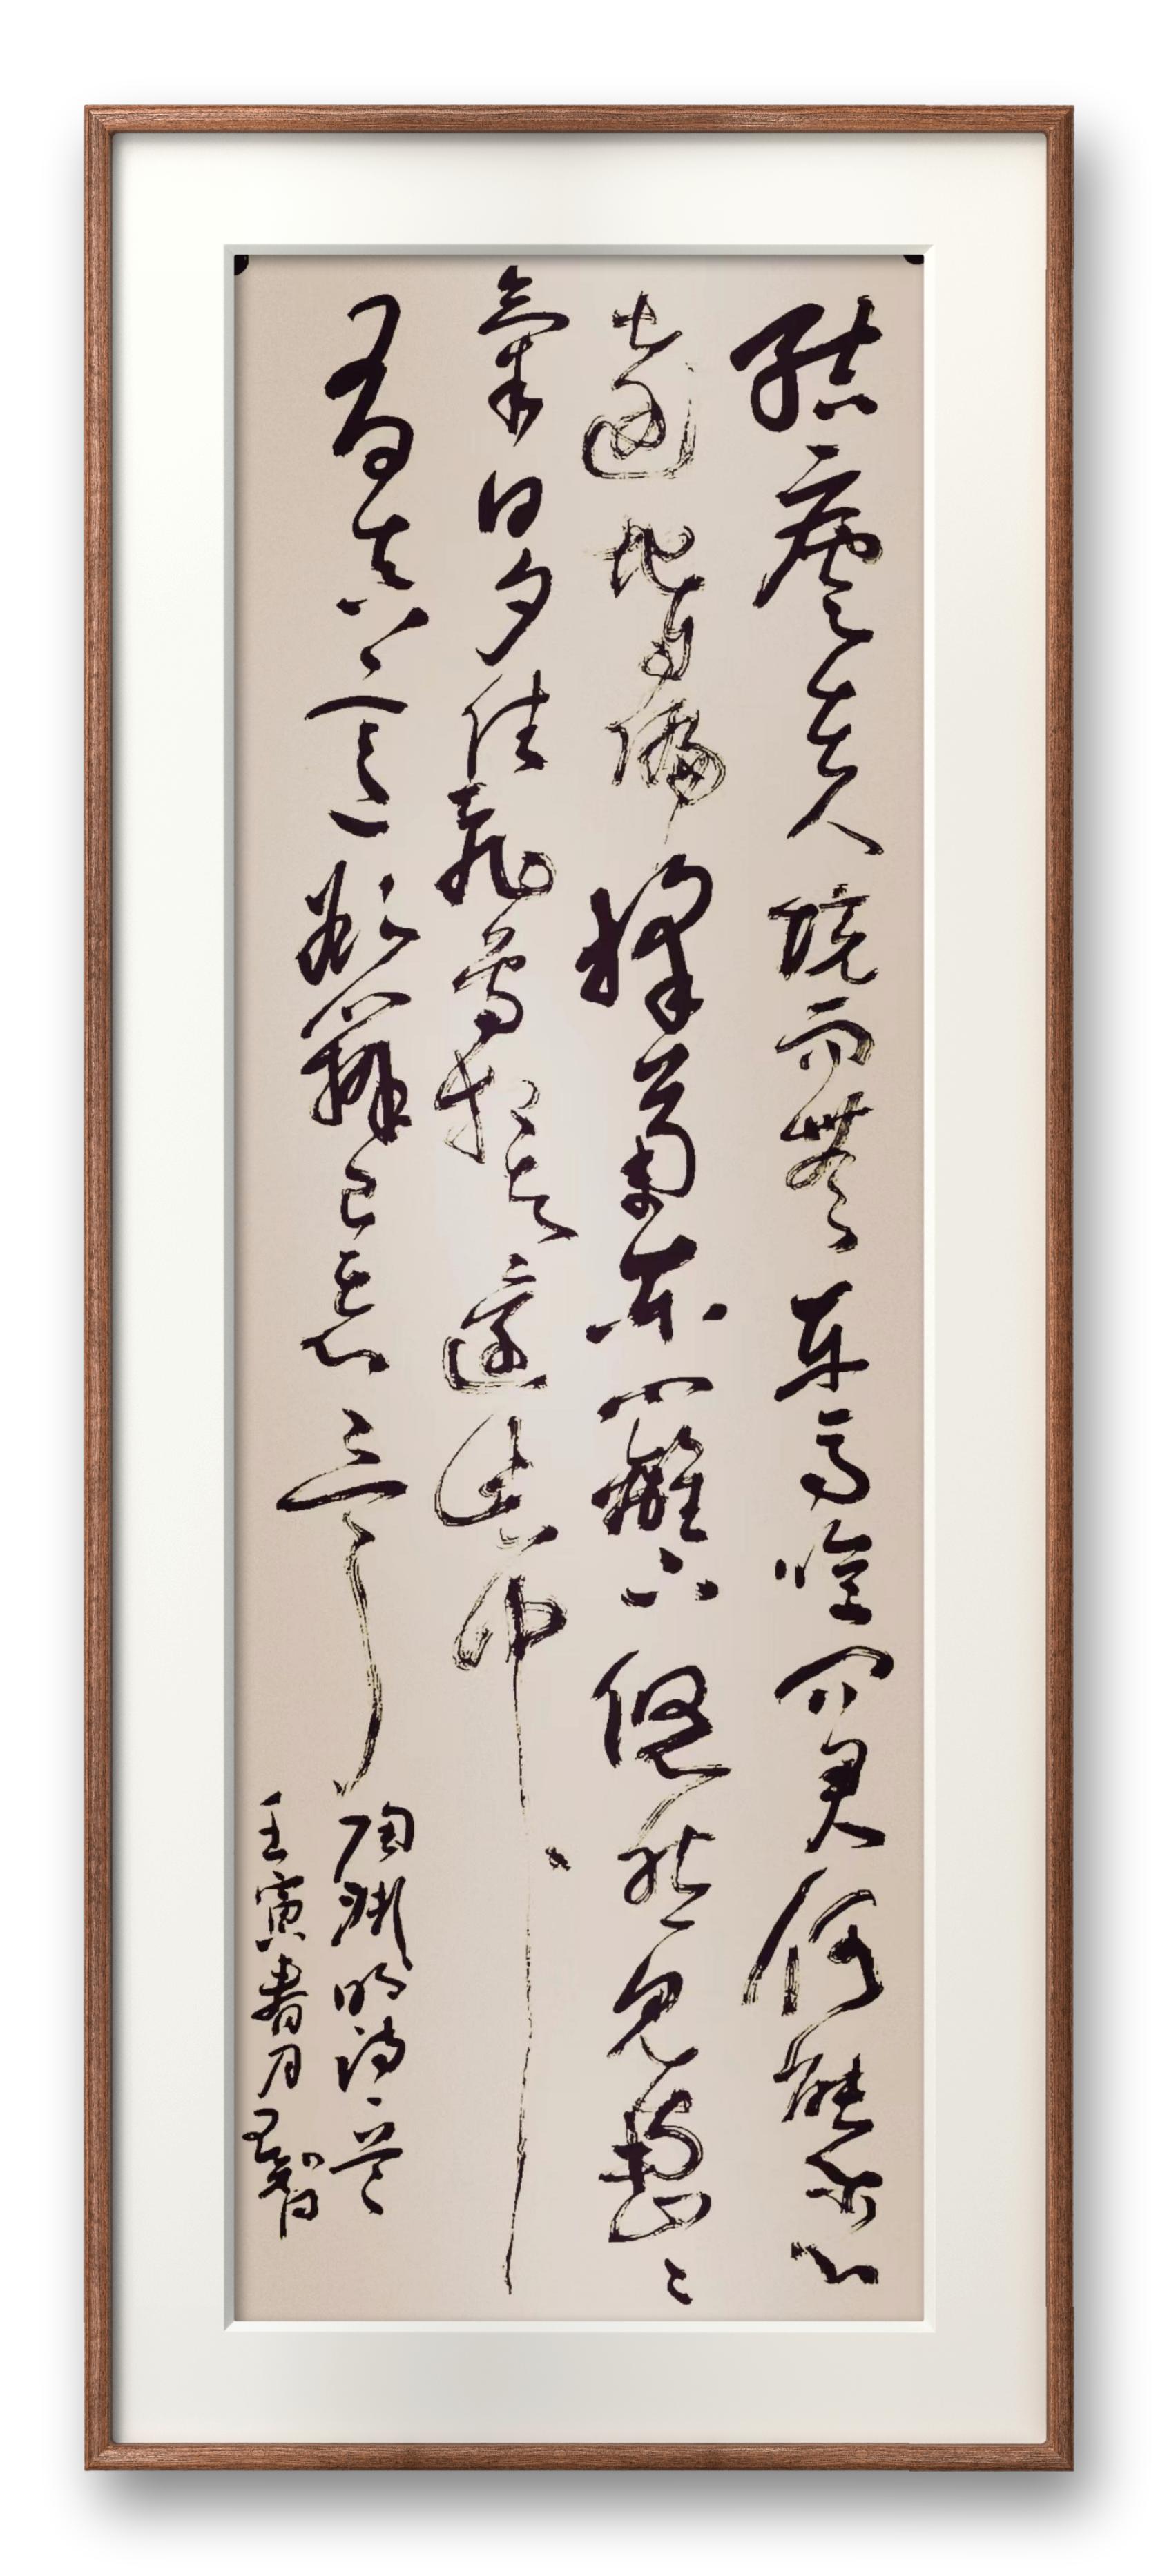 結廬在人境而無車馬喧問君何能爾心
遠地自偏採菊東籬下悠然見南山〻
氣日夕佳飛鳥相与還此中
有真意欲辨已忘言 陶淵明詩一首
壬寅春月